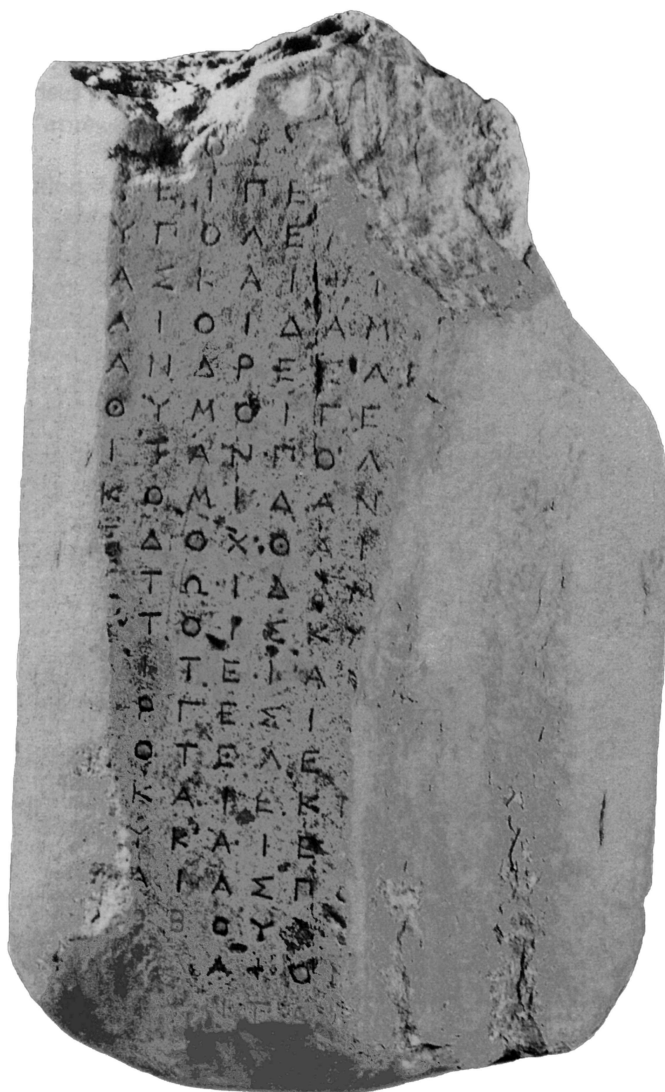 ΟΥ
ΕΙΠΕ
ΥΠΟΛΕ
ΑΣΚΑΙ Ι
ΑΙΟΙΔΑΜ
ΑΝΔΡΕΓΑ
ΘΥΜΟΙΓΕ
ΙΤΑΝΠΟΛ
ΚΟΜΙΔΑΝ
ΟΔΟΧΘΑΙ
ΤΩΙΔ
ΤΟΙΣΚ
ΙΤΕΙΑ
ΡΓΕΣΙ
ΟΤΕΛΕ
ΚΑΙΕΚ
ΥΚΑΙΕ
ΑΙΑΣΠ
ΟΥ
ΑΤΟ